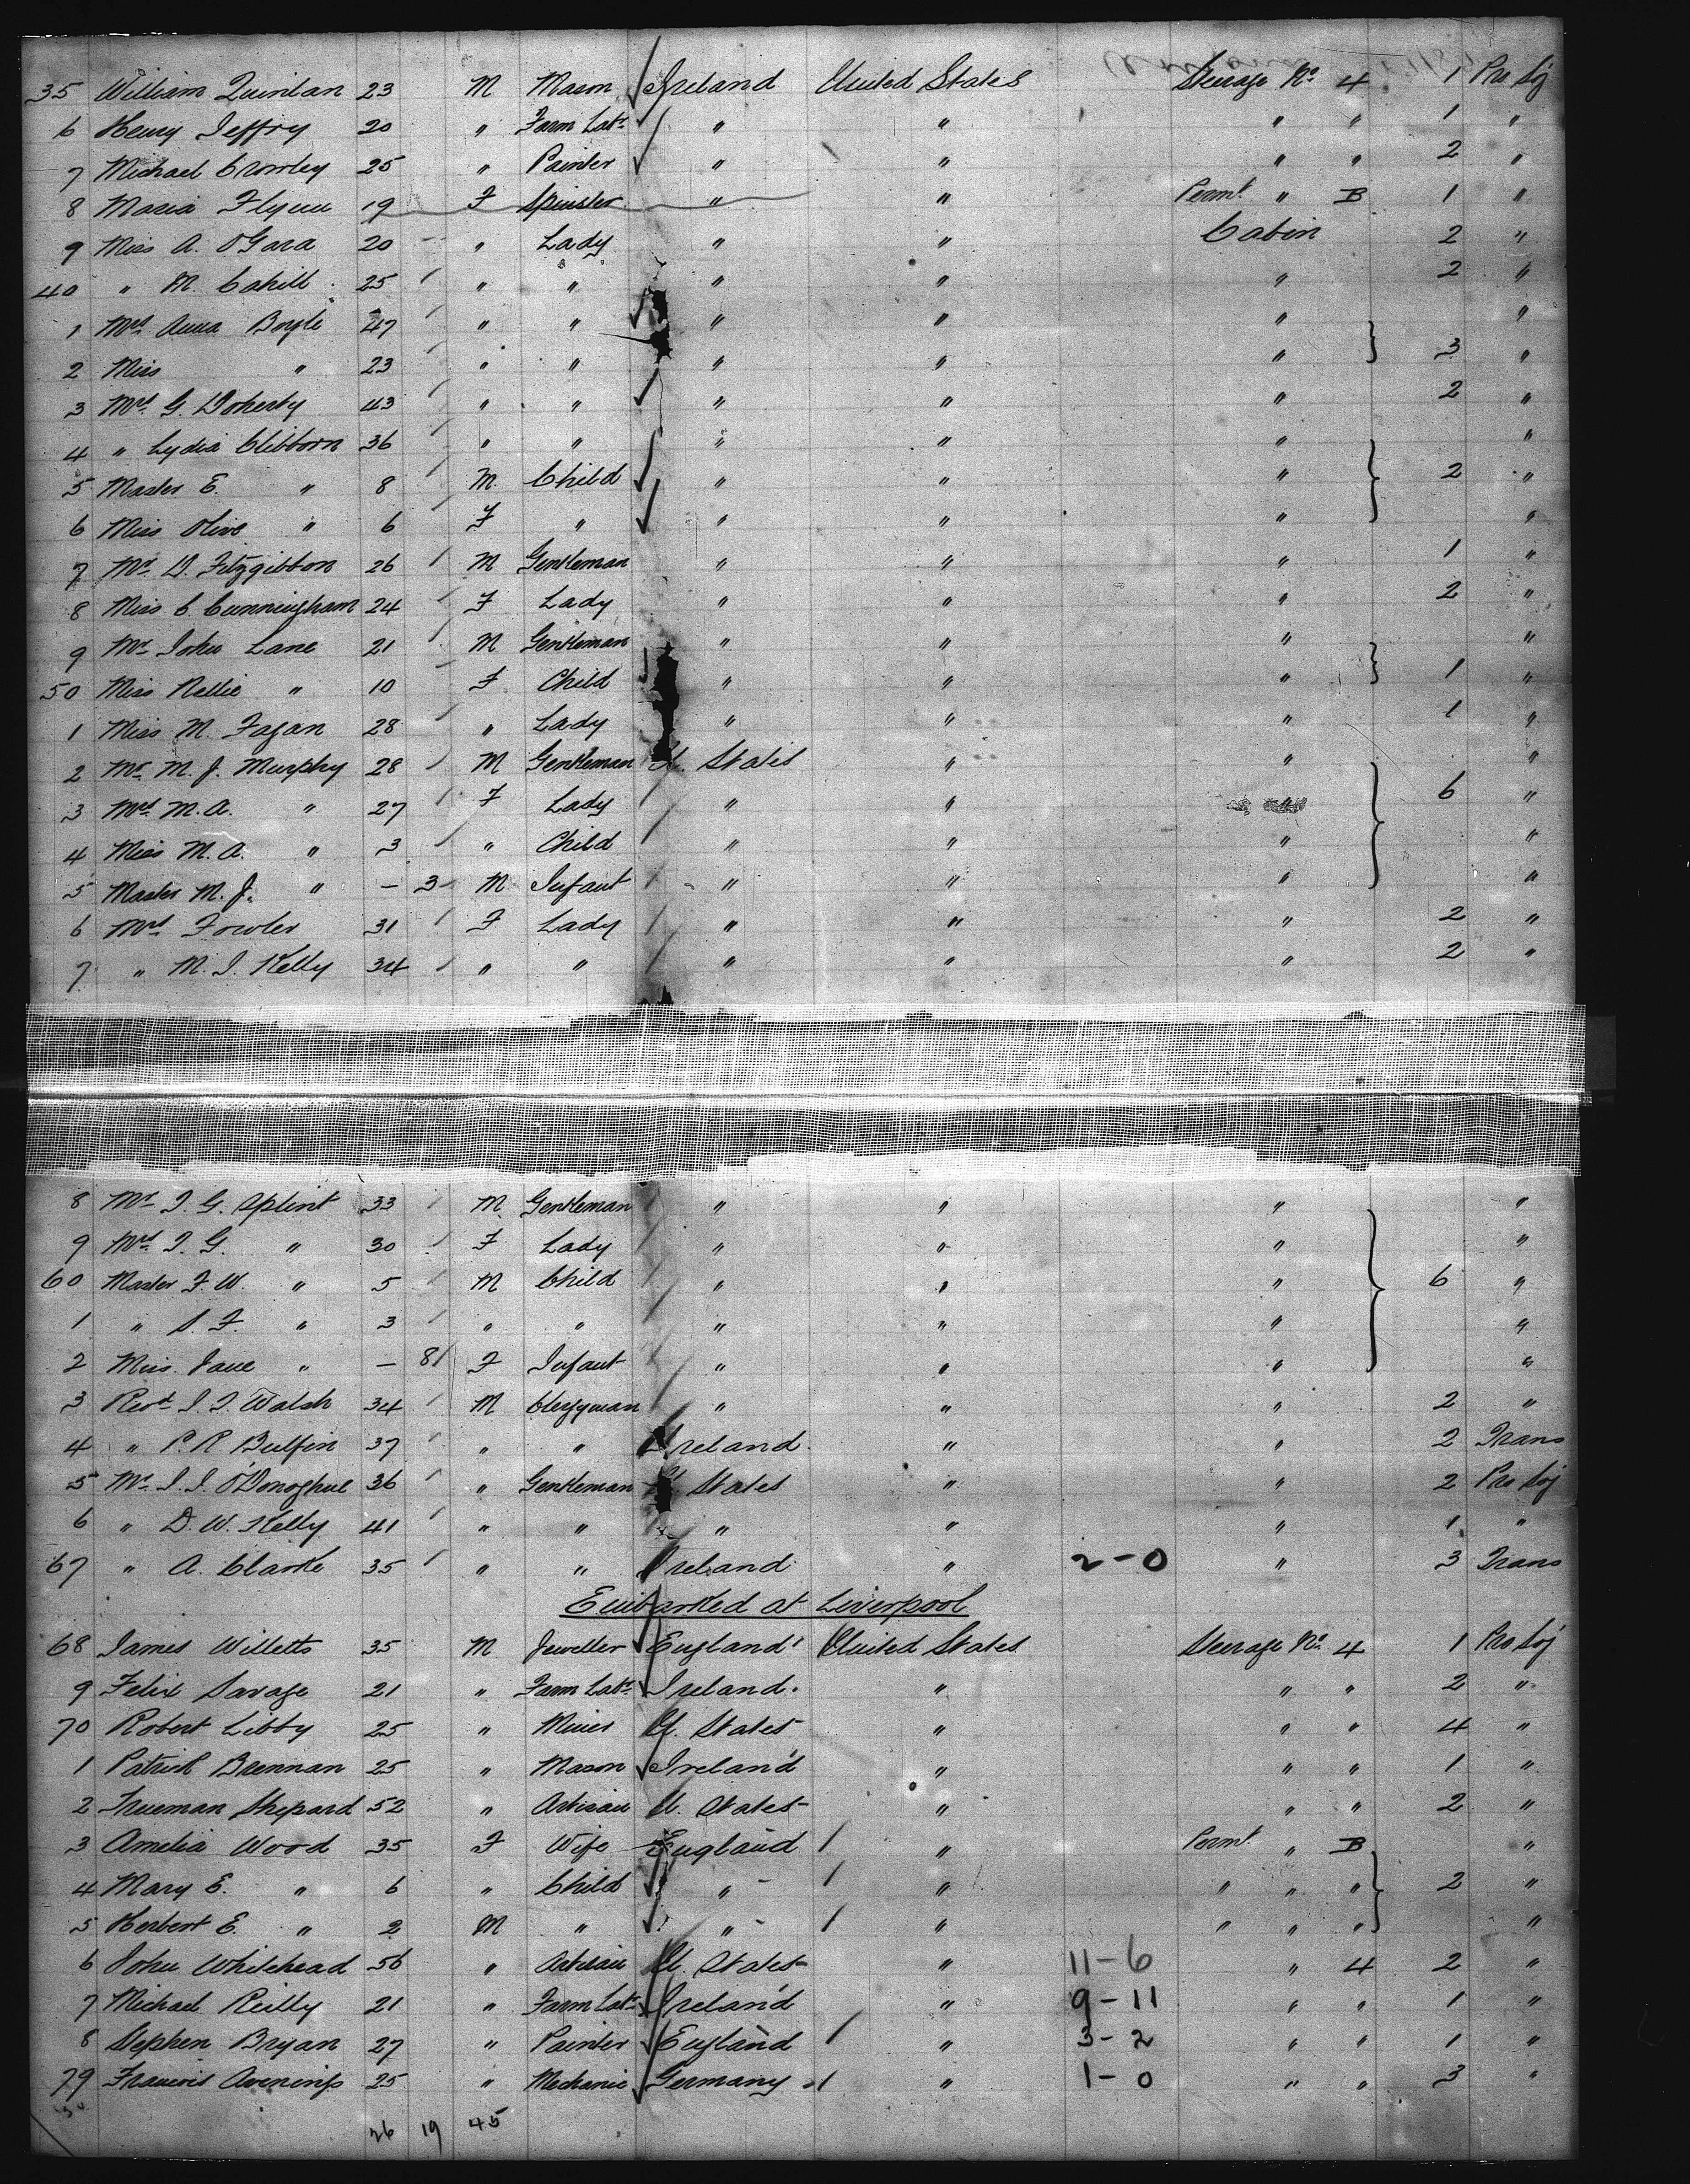 35 William Quinlan 23 M Mason Ireland United States Steerage No 4 1 Pro Soj
6 Henry Jeffry 20 " Farm Labr " " " " 1 "
7 Michael Crowley 25 " Painter " " " " 2 "
8 Maria Flynn 19 F Spinster " " Permt " B 1 "
9 Miss A. O'Gara 20 " Lady " " Cabin 2 "
40 " M. Cahill 25 " " " " " 2 "
1 Mrs Anna Boyle 47 " " " " " "
2 Miss " 23 " " " " " 3 "
3 Mrs G. Doherty 43 " " " " " 2 "
4 " Lydia Clibborn 36 " " " " " "
5 Master E. " 8 M Child " " " 2 "
6 Miss Olive " 6 F " " " " "
7 Mr D. Fitzgibbon 26 M Gentleman " " " 1 "
8 Miss C. Cunningham 24 F Lady " " " 2 "
9 Mr John Lane 21 M Gentleman " " " "
50 Miss Nellie " 10 F Child " " " 1 "
1 Miss M. Fagan 28 " Lady " " " 1 "
2 Mr M. J. Murphy 28 M Gentleman U. States " " "
3 Mrs M. A. " 27 F Lady " " " 6 "
4 Miss M. A. " 3 " Child " " " "
5 Master M. J. " - 3 M Infant " " " "
6 Mrs Fowler 31 F Lady " " " 2 "
7 " M. J. Kelly 34 " " " " " 2 "
8 Mr J. G. Splint 33 M Gentleman " " " "
9 Mrs J. G. " 30 F Lady " " " "
60 Master F. W. " 5 M Child " " " 6 "
1 " S. F. " 3 " " " " " "
2 Miss Jane " - 8 F Infant " " " "
3 Revd J. J. Walsh 34 M Clergyman " " " 2 "
4 " P. R. Bulfin 37 " " Ireland " " 2 Trans
5 Mr J. J. O'Donoghue 36 " Gentleman U. States " " 2 Pro Soj
6 " D. W. Kelly 41 " " " " " 1 "
67 " A. Clarke 35 " " Ireland " 2-0 " 3 Trans
Embarked at Liverpool
68 James Willetts 35 M Jeweller England United States Steerage No 4 1 Pro Soj
9 Felix Savage 21 " Farm Labr Ireland " " " 2 "
70 Robert Libby 25 " Miner U. States " " " 4 "
1 Patrick Brennan 25 " Mason Ireland " " " 1 "
2 Trueman Shepard 52 " Artisan U. States " " " 2 "
3 Amelia Wood 35 F Wife England " Permt " B "
4 Mary E. " 6 " Child " " " " " 2 "
5 Herbert E. " 2 M " " " " " " "
6 John Whitehead 56 " Artisan U. States " 11-6 " 4 2 "
7 Michael Reilly 21 " Farm Labr Ireland " 9-11 " " 1 "
8 Stephen Bryan 27 " Painter England " 3-2 " " 1 "
79 Francois 25 " Mechanic Germany " 1-0 " " 3 "
26 19 45